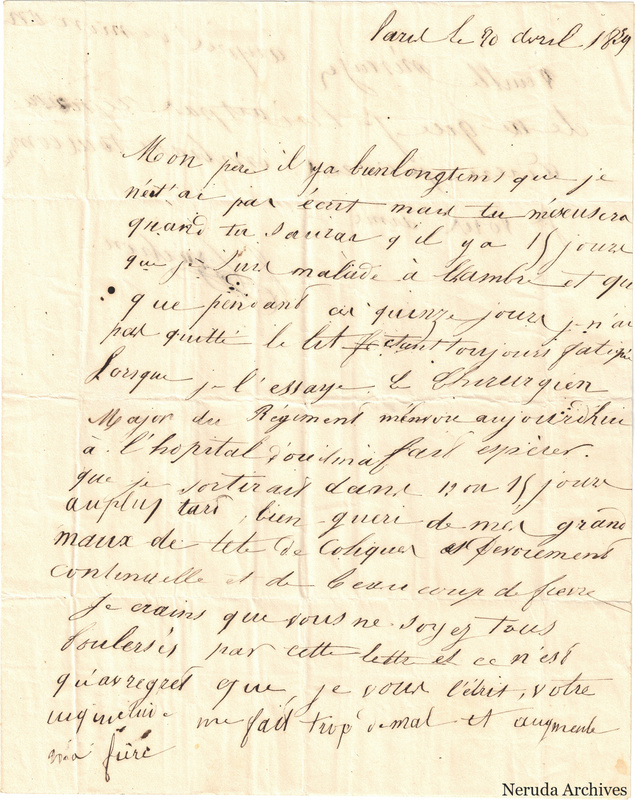 Paris le 20 avril 1839
Mon père il ya bienlongtems que je
n'ai pas écrit mais tu m'excusera
quand tu sauras q'il ya 15 jours
que je suis malade à Chambre et qu
que pendant ces quinze jours je n'ai
pas quitté le lit toujours fatigué
Lorsque je l'essaye. Le Chirurgien
Major du Régiment m'envoie aujourd'hui
à l'hopital d'ou il m'a fait espérer.
que je sortirait dans 12 ou 15 jours
auplus tard, bien gueri de mes grand
maux de tete de Coliques et devoiement
continuelle et de beaucoup de fievre
Je crains que vous ne soyez tous
boulersés par cette lettre et ce n'est
qu'avregret que je vous l'écrit, votre
me fait trop de mal et augmente
ma fievre
Neruda Archives